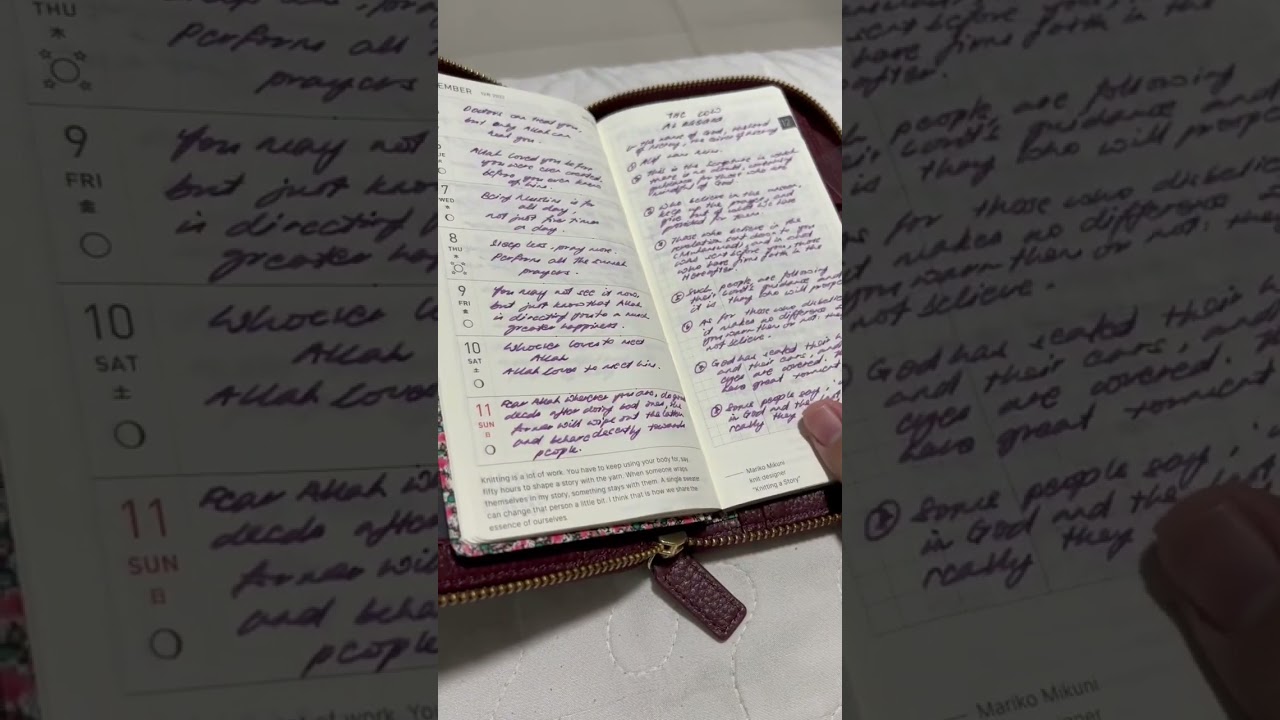 EMBER
Doctors can treat you,
but only Allah can
heal you.
Allah loved you before
you were even created,
before you even knew
of him.
7
WED
水
Being Muslim is for
all day,
not just five times
a day.
8
THU
木
Sleep less, pray more,
Perform all the sunnah
prayers.
9
FRI
金
You may not see it now,
but just know that Allah
is directing you to a much
greater happiness.
10
SAT
土
Whoever loves to meet
Allah
Allah loves to meet him.
11
SUN
日
Fear Allah wherever you are, do good
deeds after doing bad ones, the
former will wipe out the latter
and behave decently towards
people.
Knitting is a lot of work. You have to keep using your body for, say,
fifty hours to shape a story with the yarn. When someone wraps
themselves in my story, something stays with them. A single sweater
can change that person a little bit. I think that is how we share the
essence of ourselves.
THE COW
AL BAQARA
12
In the name of God, the Lord
of Mercy, the Giver of Mercy
1 Alif Lam Mim.
2 This is the Scripture in which
there is no doubt, containing
guidance for those who are
mindful of God
3 Who believe in the unseen,
keep up the prayer, and
give out of what We have
provided for them.
4 Those who believe in the
revelation sent down to you
(Muhammad), and in what
was sent before you, those
who have firm faith in the
Hereafter.
5 Such people are following
their Lord's guidance and
it is they who will prosper
6 As for those who disbelieve
it makes no difference
you warn them or not: they
not believe.
7 God has sealed their
and their ears, and
eyes are covered. They
have great torment
8 Some people say, 'we
in God and the
really they
Mariko Mikuni
knit designer
"Knitting a Story"